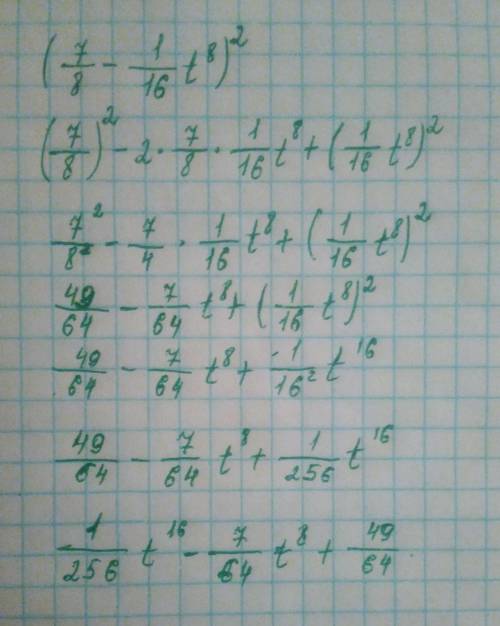 (7/8 - 1/16 t⁸)²
(7/8)² - 2 · 7/8 · 1/16 t⁸ + (1/16 t⁸)²
7²/8² - 7/4 · 1/16 t⁸ + (1/16 t⁸)²
49/64 - 7/64 t⁸ + (1/16 t⁸)²
49/64 - 7/64 t⁸ + 1/16² t¹⁶
49/64 - 7/64 t⁸ + 1/256 t¹⁶
1/256 t¹⁶ - 7/64 t⁸ + 49/64